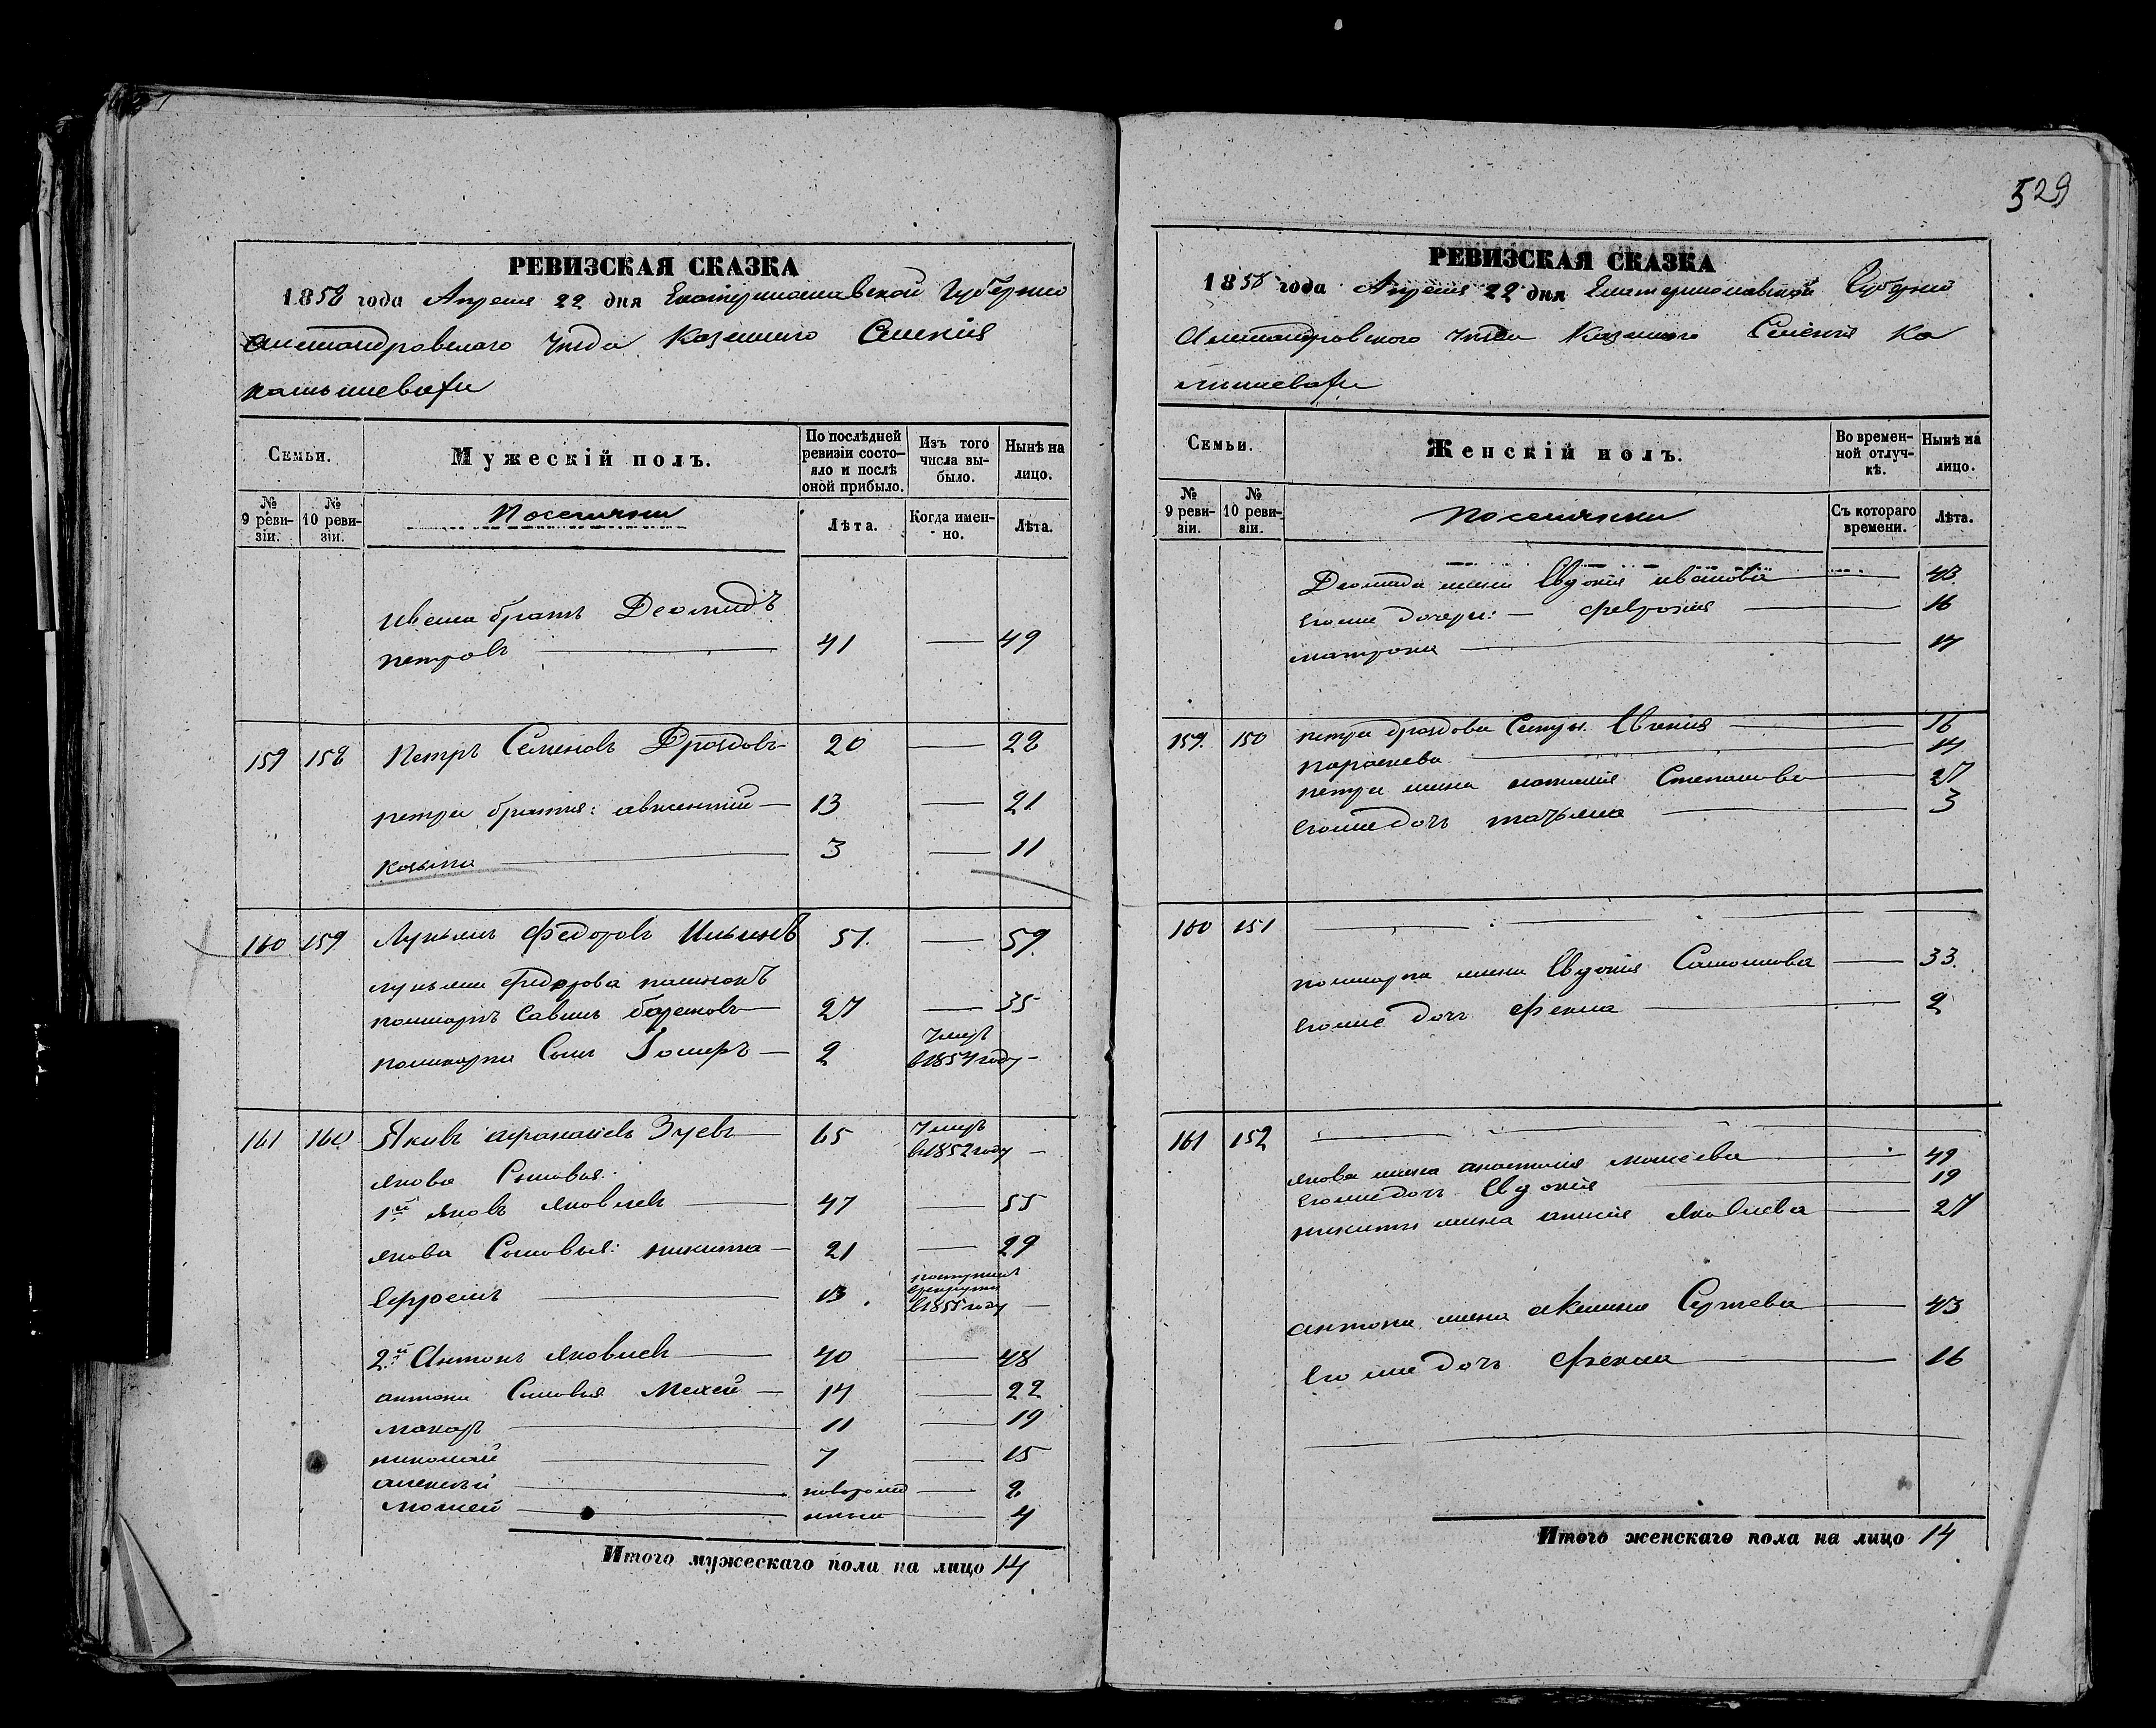 529
РЕВИЗСКАЯ СКАЗКА
1858 года Апреля 22 дня Екатеринославской Губернiи
Александровского уезда Казенного Селенiя
Камышевахи
Семьи.
Мужескiй полъ.
По послѣдней ревизiи состояло и послѣ оной прибыло.
Изъ того числа выбыло.
Нынѣ на лицо.
№ 9 ревизiи.
№ 10 ревизiи.
Поселяни
Лѣта.
Когда именно.
Лѣта.
Ивана братъ Деомидъ
петровъ 41 — 49
159 158 Петръ Семеновъ Дроздовъ 20 — 28
петра братья: авксентий 13 — 21
козьма 3 — 11
160 159 Лукьянъ Федоровъ Ильинъ 51 — 59
лукьяна Федорова
поликарпъ Савинъ 27 — 35
поликарпа Сынъ 2 умеръ
в 1854 году —
161 160 Яковъ афанасьевъ Зуевъ 65 умеръ
в 1852 году —
якова Сыновья:
1й яковъ яковлевъ 47 — 55
якова Сыновья: никита 21 — 29
Ефремъ 13 поступилъ
в рекруты
в 1855 году —
2й Антонъ яковлевъ 40 — 48
антона Сыновья 14 — 22
макаръ 11 — 19
николай 7 — 15
алексей новорожд — 9
мосей — 4
Итого мужескаго пола на лицо 14
РЕВИЗСКАЯ СКАЗКА
1858 года Апреля 22 дня Екатеринославской Губернiи
Александровского уезда Казенного Селенiя Ка
мышевахи
Семьи.
Женскiй полъ.
Во временной отлучкѣ.
Нынѣ на лицо.
№ 9 ревизiи.
№ 10 ревизiи.
Поселянки
Съ котораго времени.
Лѣта.
Деомида жена Евдокiя иванова — 43
Его же дочери: — феврония — 16
матрона —
159. 150 петра дроздова Сестры. — 16
параскева — 14
петра жена наталiя Степанова — 27
Его же дочь татьяна — 3
160 151
поликарпа жена Евдокiя — 33.
Его же дочь фекла — 2
161 152
якова жена анастасiя мосеева — 49
Его же дочь Евдокiя — 19
никиты жена яковлева — 27
антона жена акилина Сергеева — 43
Его же дочь фекла — 16
Итого женскаго пола на лицо 14